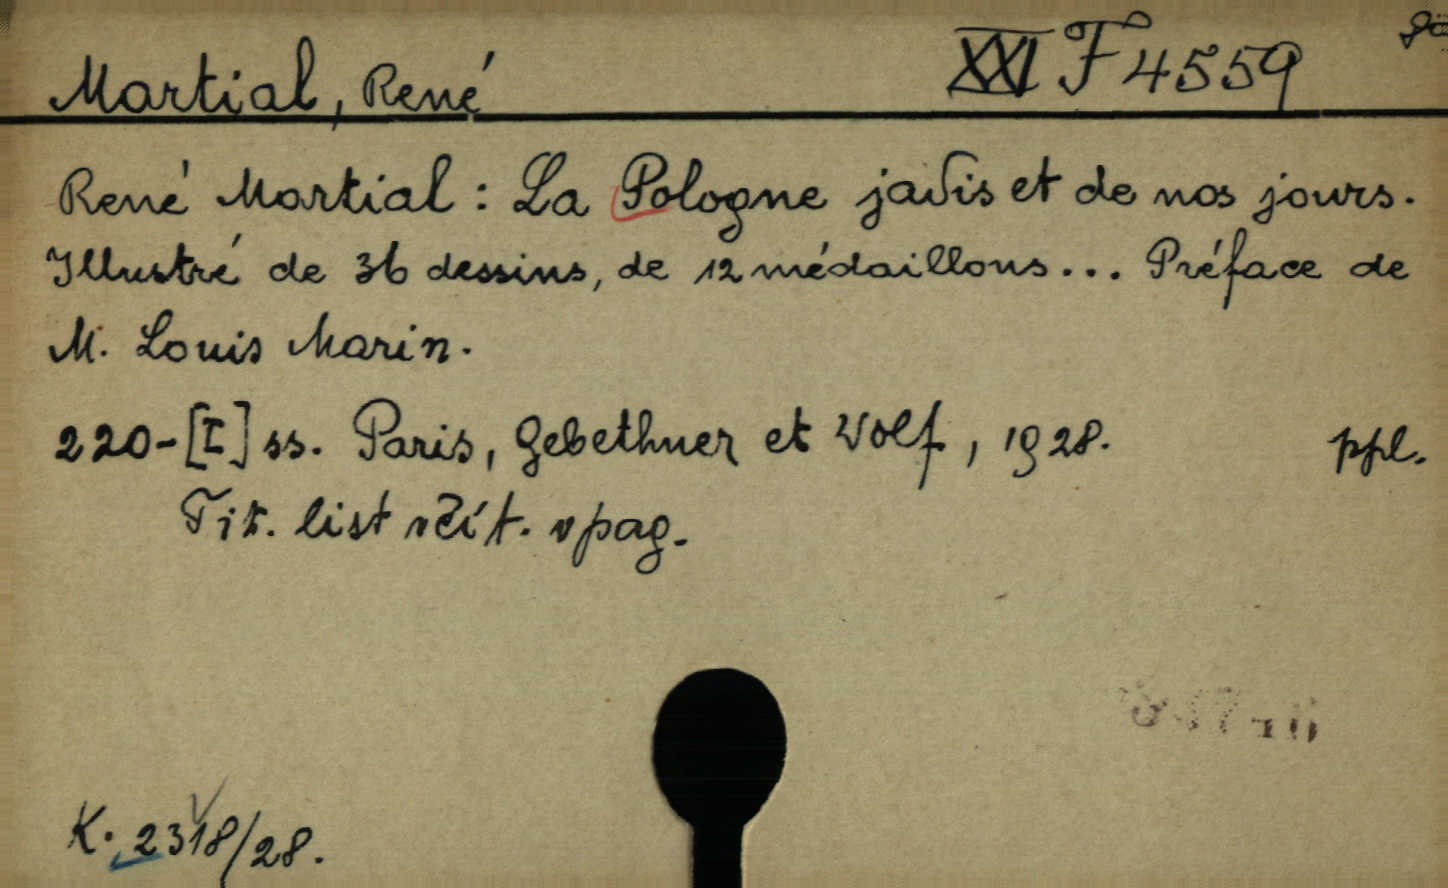 Martial, René XXI F 4559
René Martial: La Pologne jadis et de nos jours.
Illustré de 36 dessins, de 12 médaillons... Préface de
M. Louis Marin.
220-[I] ss. Paris, Gebethner et Wolf, 1928. ppl.
Tit. list včít. v pag.
K. 2318/28.